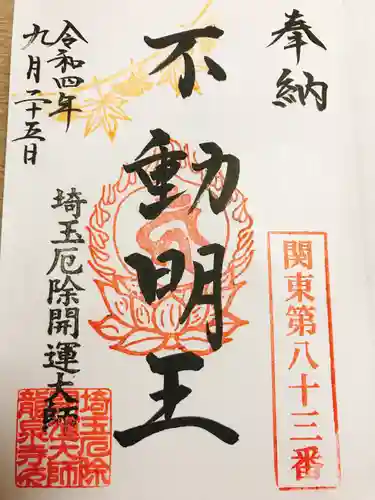 奉納
関東第八十三番
不動明王
令和四年
九月二十五日
埼玉厄除開運大師
埼玉厄除
開運大師
龍泉寺